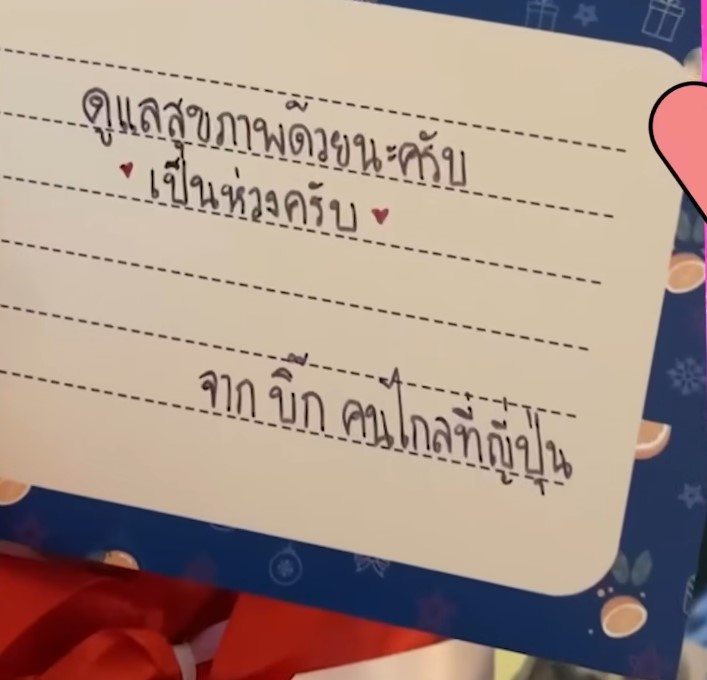 ดูแลสุขภาพด้วยนะครับ
♥ เป็นห่วงครับ ♥
จาก บิ๊ก คนไกลที่ญี่ปุ่น